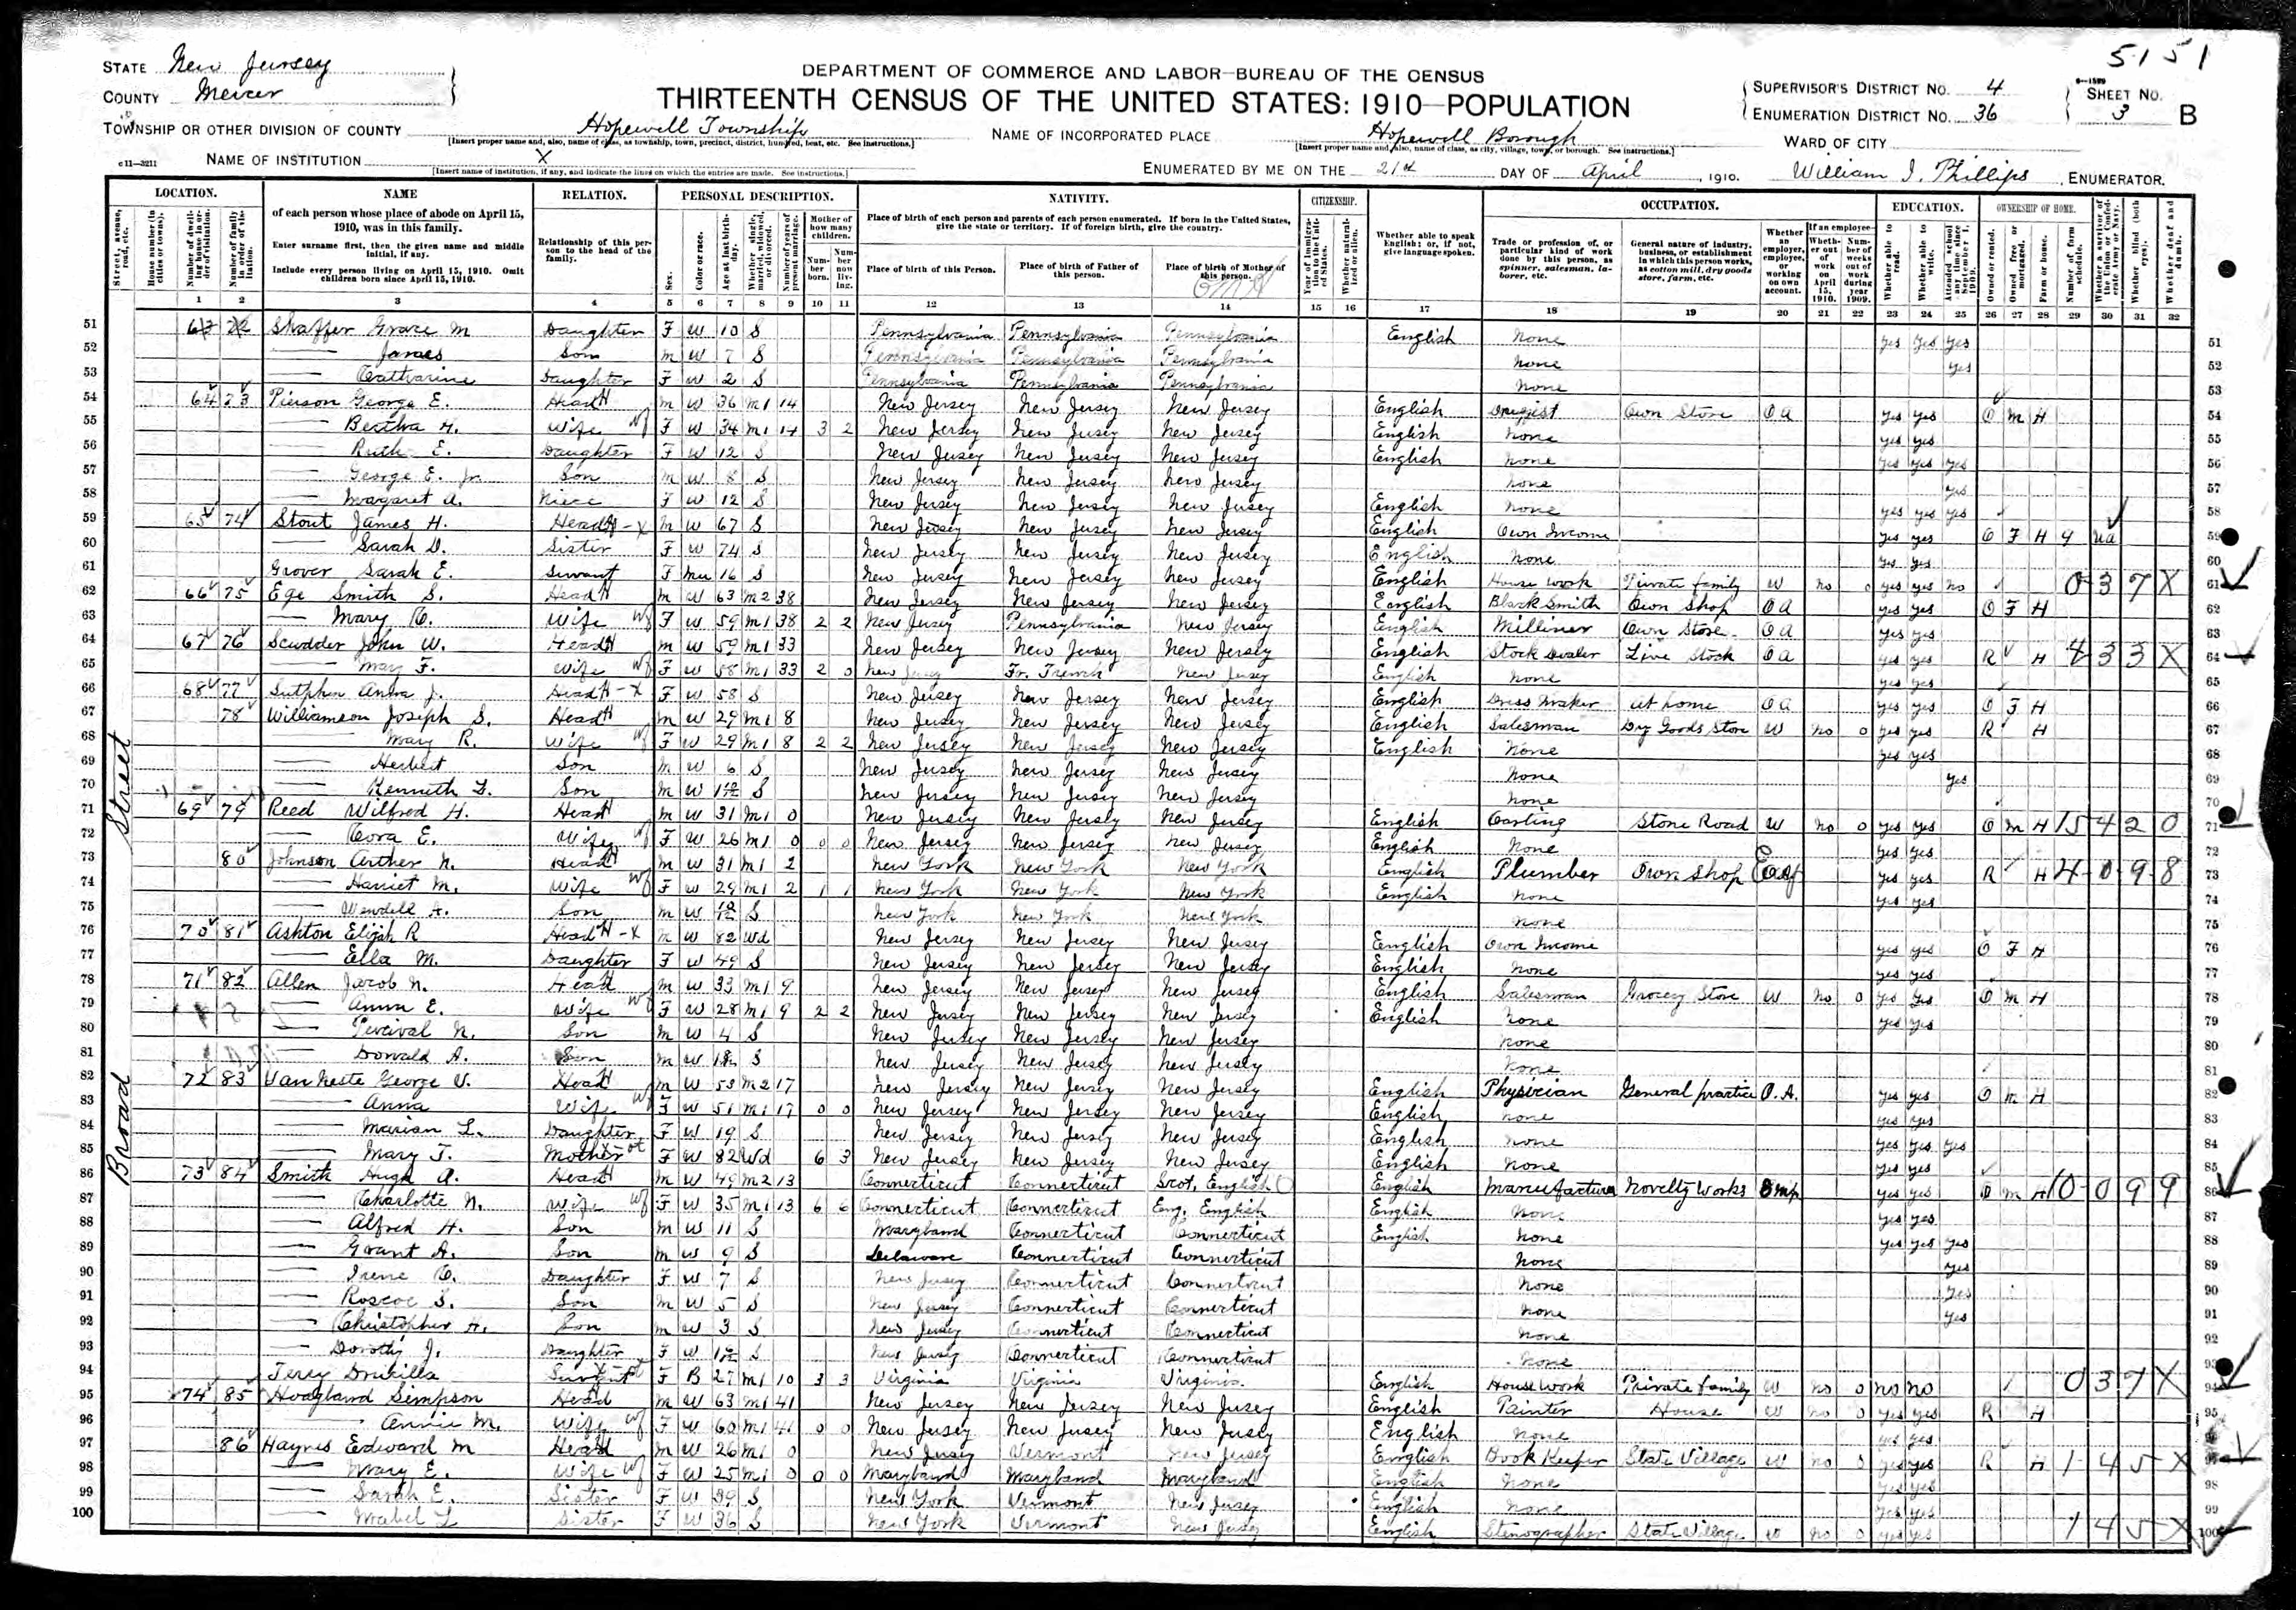 5151
STATE New Jersey
COUNTY Mercer
DEPARTMENT OF COMMERCE AND LABOR—BUREAU OF THE CENSUS
THIRTEENTH CENSUS OF THE UNITED STATES: 1910—POPULATION
SUPERVISOR'S DISTRICT NO. 4
ENUMERATION DISTRICT NO. 36
SHEET NO. 3 B
TOWNSHIP OR OTHER DIVISION OF COUNTY Hopewell Township
NAME OF INCORPORATED PLACE Hopewell Borough
WARD OF CITY
NAME OF INSTITUTION X
ENUMERATED BY ME ON THE 21st DAY OF April, 1910. William I. Phillips, ENUMERATOR.
LOCATION. NAME RELATION. PERSONAL DESCRIPTION. NATIVITY. CITIZENSHIP. OCCUPATION. EDUCATION. OWNERSHIP OF HOME.
of each person whose place of abode on April 15, 1910, was in this family.
Enter surname first, then the given name and middle initial, if any.
Include every person living on April 15, 1910. Omit children born since April 15, 1910.
Relationship of this person to the head of the family.
Place of birth of each person and parents of each person enumerated. If born in the United States, give the state or territory. If of foreign birth, give the country.
Place of birth of this Person. Place of birth of Father of this person. Place of birth of Mother of this person.
Whether able to speak English; or, if not, give language spoken.
Trade or profession of, or particular kind of work done by this person, as spinner, salesman, laborer, etc.
General nature of industry, business, or establishment in which this person works, as cotton mill, dry goods store, farm, etc.
1 2 3 4 5 6 7 8 9 10 11 12 13 14 15 16 17 18 19 20 21 22 23 24 25 26 27 28 29 30 31 32
Broad Street
51 Shaffer Grace M Daughter F W 10 S Pennsylvania Pennsylvania Pennsylvania English None yes yes yes
52 — James Son M W 7 S Pennsylvania Pennsylvania Pennsylvania None yes
53 — Catharine Daughter F W 2 S Pennsylvania Pennsylvania Pennsylvania None
54 64 73 Pierson George E. Head M W 36 M1 14 New Jersey New Jersey New Jersey English Own Store OA yes yes O M H
55 — Bertha H. Wife F W 34 M1 14 3 2 New Jersey New Jersey New Jersey English None yes yes
56 — Ruth E. Daughter F W 12 S New Jersey New Jersey New Jersey English None yes yes yes
57 — George E. Jr. Son M W 8 S New Jersey New Jersey New Jersey None yes
58 — Margaret A. Niece F W 12 S New Jersey New Jersey New Jersey English None yes yes yes
59 65 74 Stout James H. Head M W 67 S New Jersey New Jersey New Jersey English Own Income yes yes O F H
60 — Sarah D. Sister F W 74 S New Jersey New Jersey New Jersey English None yes yes
61 Grover Sarah E. Servant F Mu 16 S New Jersey New Jersey New Jersey English House work Private family W no 0 yes yes no 0 3 7 X
62 66 75 Ege Smith S. Head M W 63 M2 38 New Jersey New Jersey New Jersey English Black Smith Own Shop OA yes yes O F H
63 — Mary C. Wife F W 59 M1 38 2 2 New Jersey Pennsylvania New Jersey English Milliner Own Store OA yes yes
64 67 76 Scudder John W. Head M W 59 M1 33 New Jersey New Jersey New Jersey English Stock Dealer Live Stock OA yes yes R H 4 3 3 X
65 — Mary F. Wife F W 58 M1 33 2 0 New Jersey Fr. French New Jersey English None yes yes
66 68 77 Sutphen Anna J. Head F W 58 S New Jersey New Jersey New Jersey English Dress Maker at home OA yes yes O F H
67 78 Williamson Joseph S. Head M W 29 M1 8 New Jersey New Jersey New Jersey English Salesman Dry Goods Store W no 0 yes yes R H
68 — Mary R. Wife F W 29 M1 8 2 2 New Jersey New Jersey New Jersey English None yes yes
69 — Herbert Son M W 6 S New Jersey New Jersey New Jersey None yes
70 — Kenneth L. Son M W S New Jersey New Jersey New Jersey None
71 69 79 Reed Wilfred H. Head M W 31 M1 0 New Jersey New Jersey New Jersey English Carting Stone Road W no 0 yes yes O M H 15 4 2 0
72 — Cora E. Wife F W 26 M1 0 0 0 New Jersey New Jersey New Jersey English None yes yes
73 80 Johnson Arther N. Head M W 31 M1 2 New York New York New York English Plumber Own Shop yes yes R H 4 0 9 8
74 — Harriet M. Wife F W 29 M1 2 1 1 New York New York New York English None yes yes
75 — Wendell A. Son M W S New York New York New York None
76 70 81 Ashton Elijah R Head M W 82 Wd New Jersey New Jersey New Jersey English Own Income yes yes O F H
77 — Ella M. Daughter F W 49 S New Jersey New Jersey New Jersey English None yes yes
78 71 82 Allen Jacob N. Head M W 33 M1 9 New Jersey New Jersey New Jersey English Salesman Grocery Store W no 0 yes yes O M H
79 — Anna E. Wife F W 28 M1 9 2 2 New Jersey New Jersey New Jersey English None yes yes
80 — Percival N. Son M W 4 S New Jersey New Jersey New Jersey None
81 — Donald A. Son M W S New Jersey New Jersey New Jersey None
82 72 83 Van Neste George V. Head M W 53 M2 17 New Jersey New Jersey New Jersey English Physician General practice O.A. yes yes O M H
83 — Anna Wife F W 51 M1 17 0 0 New Jersey New Jersey New Jersey English none yes yes
84 — Marian L. Daughter F W 19 S New Jersey New Jersey New Jersey English None yes yes yes
85 — Mary T. Mother F W 82 Wd 6 3 New Jersey New Jersey New Jersey English None yes yes
86 73 84 Smith Hugh A. Head M W 49 M2 13 Connecticut Connecticut Scot. English English Manufacturer Novelty Works Emp yes yes O M H 10 0 9 9
87 — Charlotte N. Wife F W 35 M1 13 6 6 Connecticut Connecticut Eng. English English None yes yes
88 — Alfred H. Son M W 11 S Maryland Connecticut Connecticut English None yes yes yes
89 — Grant A. Son M W 9 S Delaware Connecticut Connecticut None yes
90 — Irene C. Daughter F W 7 S New Jersey Connecticut Connecticut None yes
91 — Roscoe S. Son M W 5 S New Jersey Connecticut Connecticut None yes
92 — Christopher A. Son M W 3 S New Jersey Connecticut Connecticut None
93 — Dorothy J. Daughter F W S New Jersey Connecticut Connecticut None
94 Terey Drukilla Servant F B 27 M1 10 3 3 Virginia Virginia Virginia English House work Private family W no 0 no no 0 3 7 X
95 74 85 Hoagland Simpson Head M W 63 M1 41 New Jersey New Jersey New Jersey English Painter House W no 0 yes yes R H
96 — Annie M. Wife F W 60 M1 41 0 0 New Jersey New Jersey New Jersey English None yes yes
97 86 Haynes Edward M Head M W 26 M1 0 New Jersey Vermont New Jersey English Book Keeper State Village W no 0 yes yes R H 1 4 5 X
98 — Mary E. Wife F W 25 M1 0 0 0 Maryland Maryland Maryland English None yes yes
99 — Sarah E. Sister F W 39 S New York Vermont New Jersey English None yes yes
100 — Mabel L Sister F W 36 S New York Vermont New Jersey English Stenographer State Village W no 0 yes yes 1 4 5 X